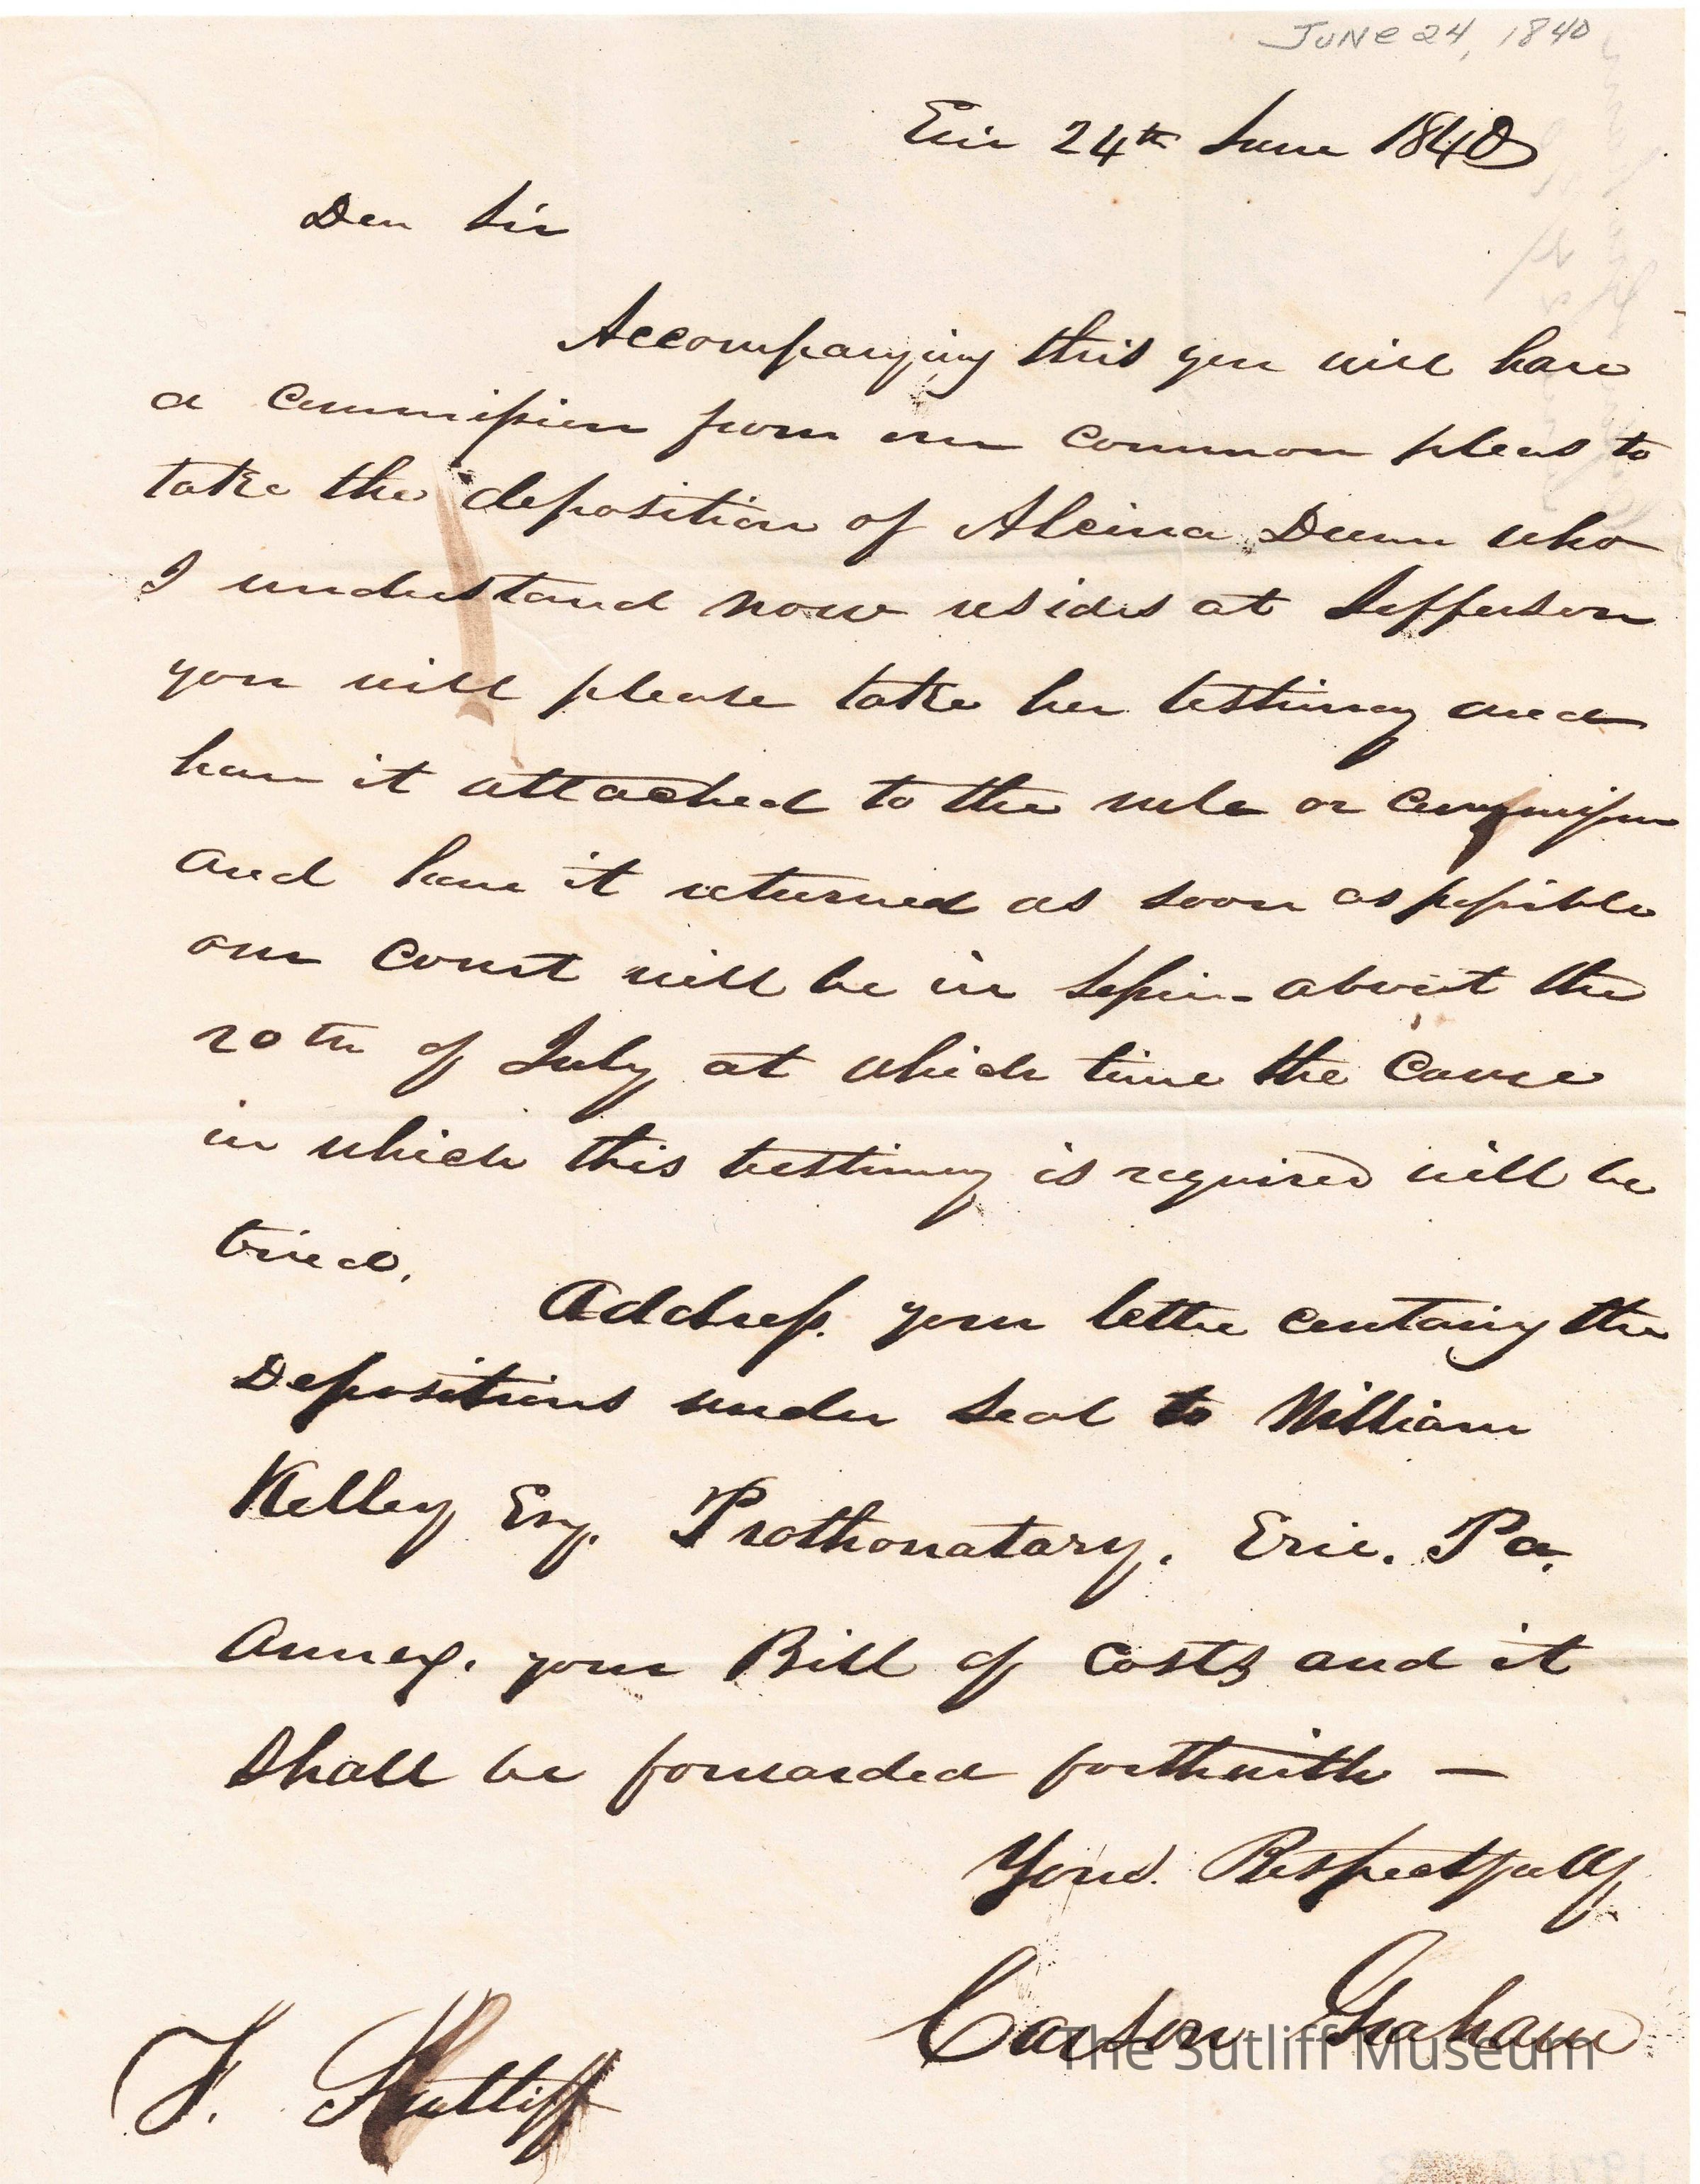 JUNE 24, 1840
Erie 24th June 1840
Dear Sir
Accompanying this you will have
a commission from our common pleas to
take the deposition of Alcina Dunn who
I understand now resides at Jefferson
you will please take her testimony and
have it attached to the rule or commission
and have it returned as soon as possible
our court will be in session about the
20th of July at which time the cause
in which this testimony is required will be
tried.
Address your letter containg the
Depositions under seal to William
Kelley Esq. Prothonatary. Erie. Pa.
Annex. your Bill of Costs and it
shall be forwarded forthwith —
Yours. Respectfully
Carson Graham
F. Sutliff
The Sutliff Museum